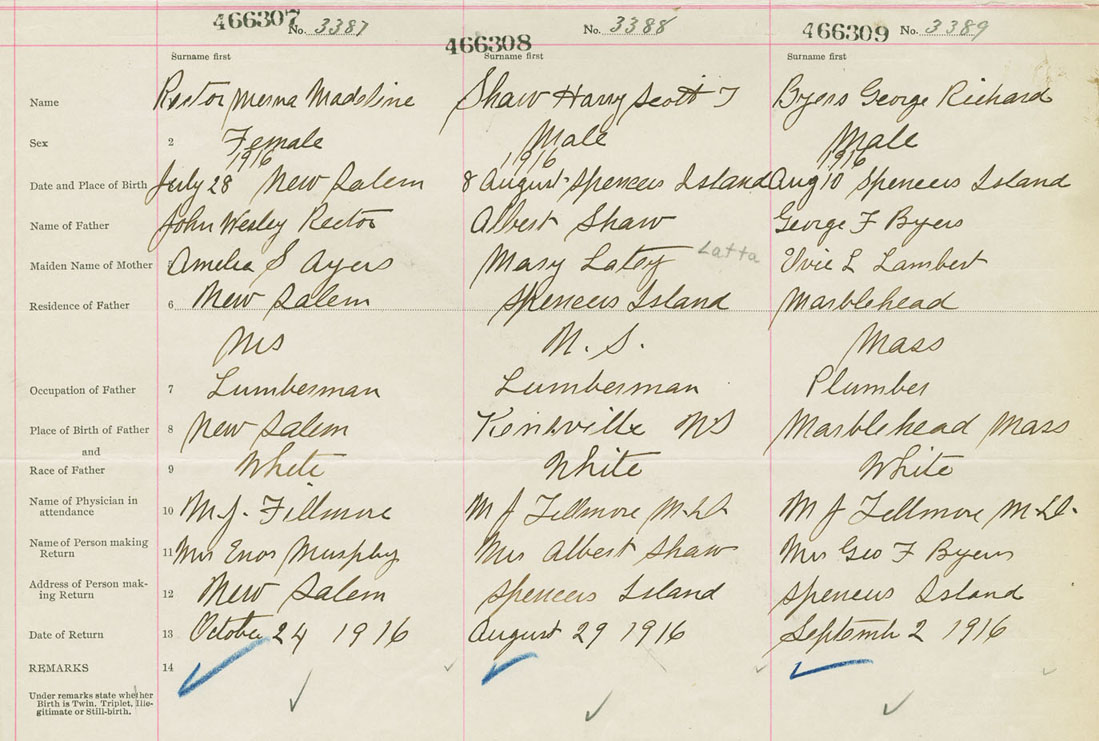 466307 No. 3387 466308 No. 3388 466309 No. 3389
Surname first Surname first Surname first
Name Rector Merna Madeline Shaw Harry Scott T Byers George Richard
Sex 2 Female Male Male
1916 1916 1916
Date and Place of Birth July 28 New Salem 8 August Spencers Island Aug 10 Spencers Island
Name of Father John Wesley Rector Albert Shaw George F Byers
Maiden Name of Mother Amelia S Ayers Mary Latey Latta L Lambert
Residence of Father 6 New Salem Spencers Island Marblehead
NS N. S. Mass
Occupation of Father 7 Lumberman Lumberman Plumber
Place of Birth of Father 8 New Salem NS Marblehead Mass
and
Race of Father 9 White White White
Name of Physician in
attendance 10 M. J. Fillmore M J Fillmore M.D. M J Fillmore M.D.
Name of Person making
Return 11 Mrs Enos Murphy Mrs Albert Shaw Mrs Geo F Byers
Address of Person mak-
ing Return 12 New Salem Spencers Island Spencers Island
Date of Return 13 October 24 1916 August 29 1916 Septemb 2 1916
REMARKS 14
Under remarks state whether
Birth is Twin, Triplet, Ille-
gitimate or Still-birth.